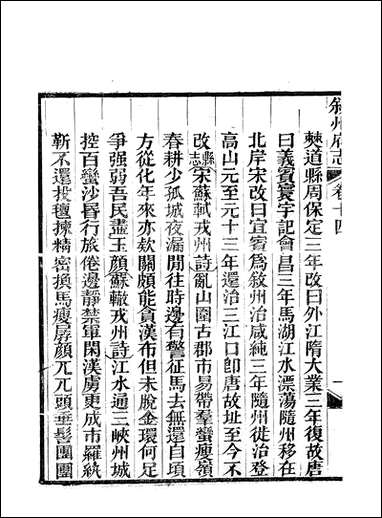 叙州府志 卷十四 一
僰道縣周保定三年改曰外江隋大業三年復故唐
曰義賓寰宇記會昌三年馬湖江水漂蕩隨州移在
北岸宋改曰宜賓爲敘州治咸純三年隨州徙治登
高山元至元十三年還治三江口卽唐故址至今不
改縣志宋蘇軾戎州詩亂山圍古郡市易帶羣蠻瘦嶺
春耕少孤城夜漏閒往時邊有警征馬去無還自頃
方從化年來亦欵關頗能貪漢布但未脫金環何足
爭强弱吾民盡玉顏蘇轍戎州詩江水通三峽州城
控百蠻沙昏行旅倦邊靜禁軍閑漢虜更成市羅紈
靳不還投氊揀精密換馬瘦孱顏兀兀頭垂髻團團